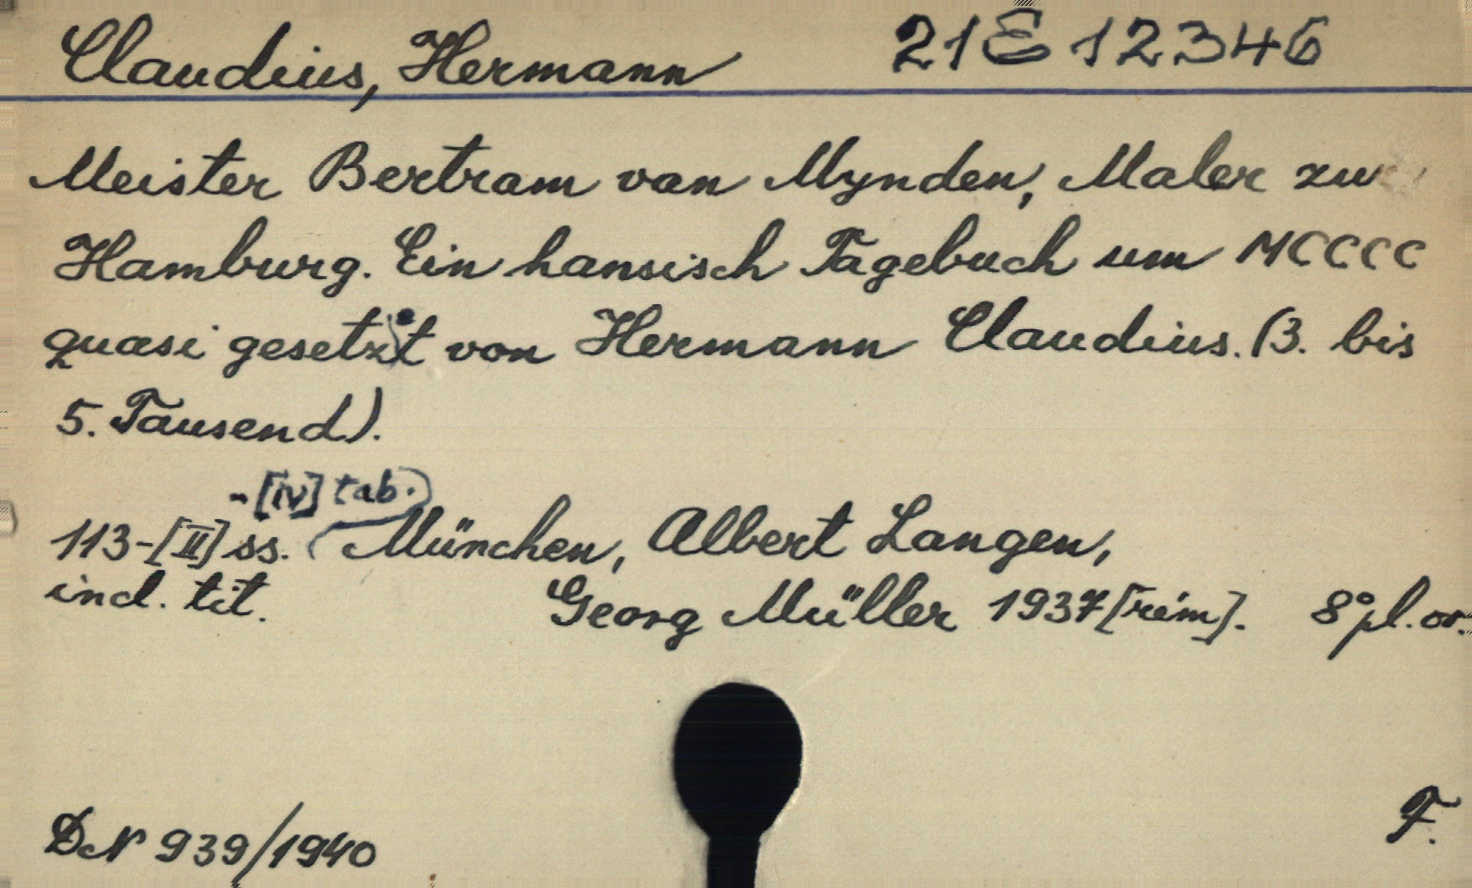 Claudius, Hermann 21 E 12346
Meister Bertram van Mynden, Maler zu
Hamburg. Ein hansisch Tagebuch um MCCCC
quasi gesetzt von Hermann Claudius. (3. bis
5. Tausend).
-[iv] tab.
113-[II] ss. München, Albert Langen,
incl. tit. Georg Müller 1937 [rim]. 8° pl. or.
DN 939/1940 F.